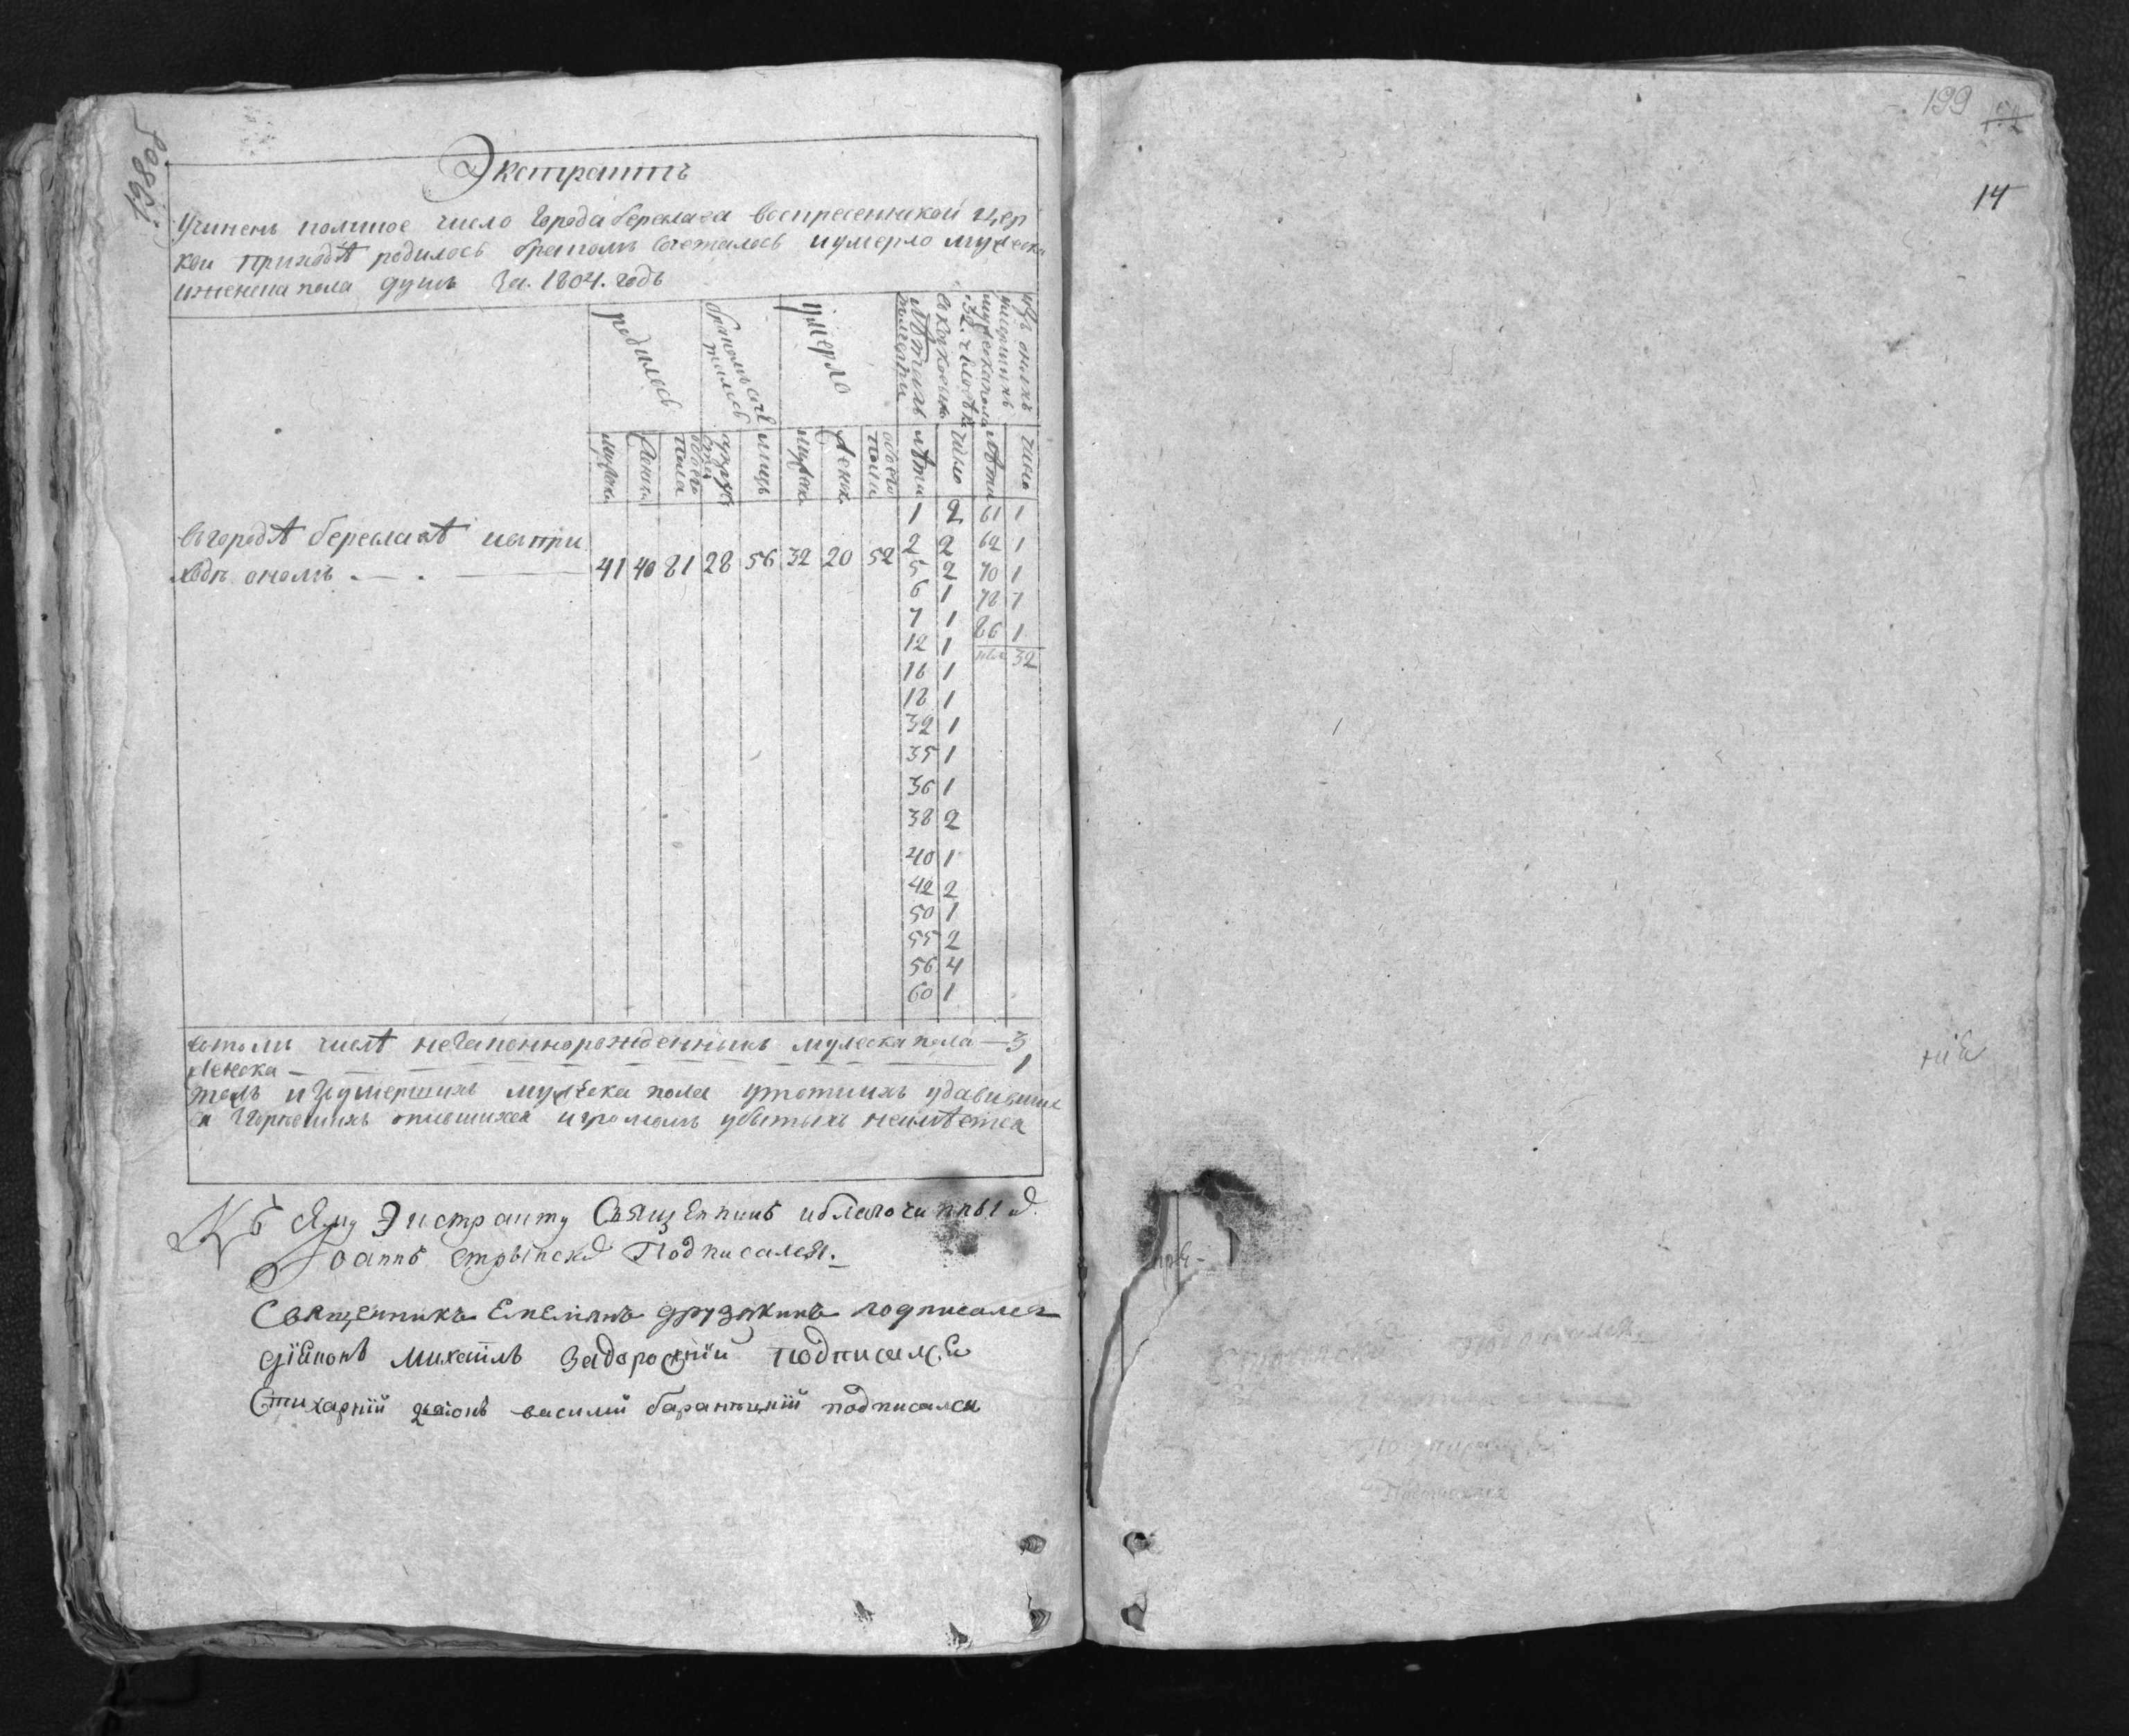 198об
Экстрактъ
Учиненъ коликое число города береслава воскресенской цер
кви приходѣ родилось бракомъ сочеталось и умерло мужеска
и женска пола душъ за 1804. годъ
родилось
бракомъ соче
талось
умерло
число
мужеска
женска
обоего
пола
лицъ
мужеска
женска
обоего
пола
лѣта
число
лѣта
число
въ городѣ береславѣ и въ при
ходѣ ономъ . — . —
41 40 81 28 56 32 20 52
1 2 61 1
2 2 62 1
5 2 70 1
6 1 78 1
7 1 86 1
12 1 32
16 1
18 1
32 1
35 1
36 1
38 2
40 1
42 2
50 1
55 2
56 4
60 1
въ томъ числѣ незаконнорожденныхъ мужеска пола — 3
женска — 1
изъ умершихъ мужеска пола утопшихъ удавивших
ся згорѣвшихъ опившихся и громомъ убитыхъ неимѣется
Къ сему Экстракту Священникъ и благочинный
Іоаннъ Стрынскій Подписался.
Священникъ Емелианъ дружкинъ подписался
діаконъ Михаилъ Задорожній подписался
Стихарній діаконъ василий баранецкій подписался
199
14